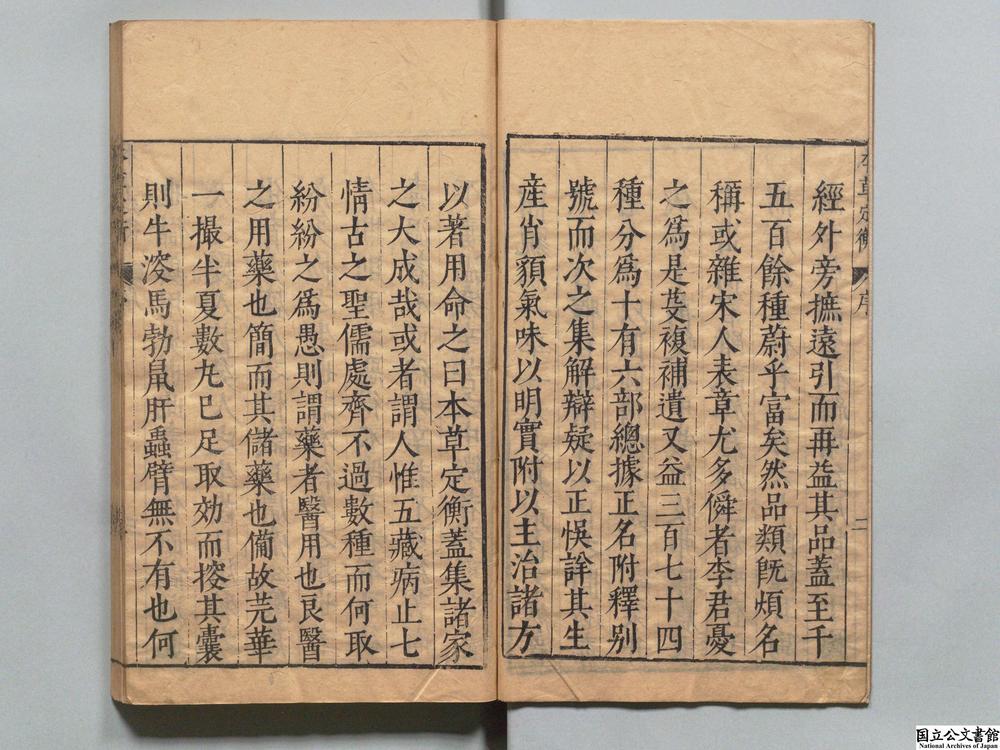 經外旁摭遠引而再益其品蓋至千
五百餘種蔚乎富矣然品類旣煩名
稱或雜宋人表章尤多僢者李君憂
之爲是芟複補遺又益三百七十四
種分爲十有六部總據正名附釋别
號而次之集解辯疑以正悞詳其生
産肖䫉氣味以明實附以主治諸方
以著用命之曰本草定衡蓋集諸家
之大成哉或者謂人惟五藏病止七
情古之聖儒處齊不過數種而何取
紛紛之爲愚則謂藥者醫用也良醫
之用藥也簡而其儲藥也備故芫華
一撮半夏數丸已足取効而挍其囊
則牛溲馬勃鼠肝蟲臂無不有也何
本草定衡
序
二
国立公文書館
National Archives of Japan